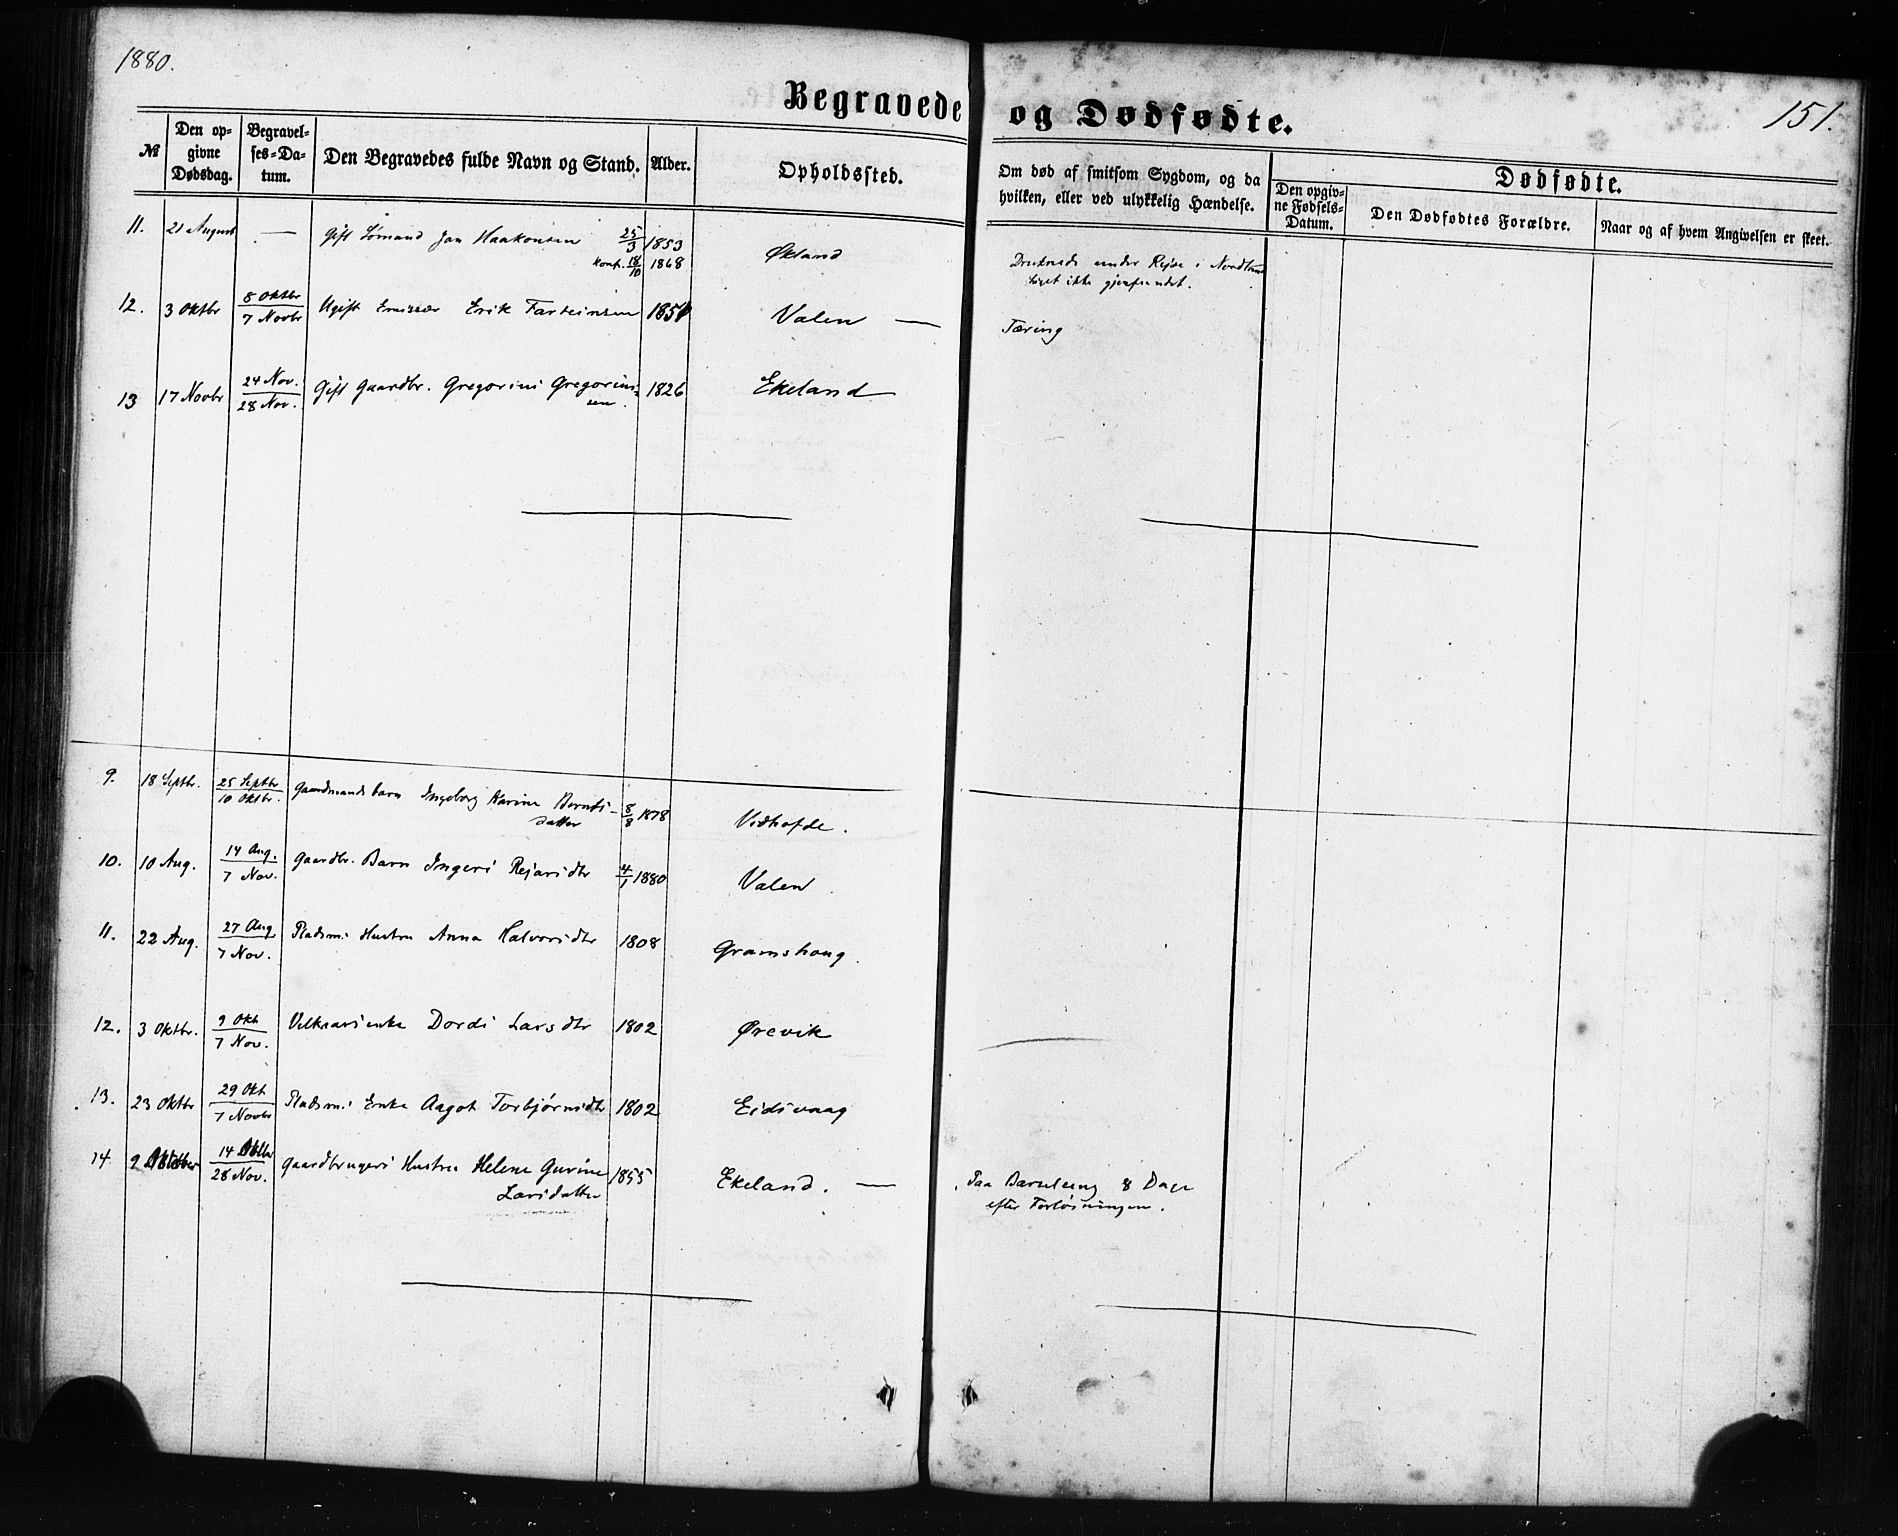 1880.
Begravede og Dødfødte.
151.
№
Den opgivne Dødsdag.
Begravelses-Datum.
Den Begravedes fulde Navn og Stand.
Alder.
Opholdssted.
Om død af smitsom Sygdom, og da hvilken, eller ved ulykkelig Hændelse.
Dødfødte.
Den opgivne Fødsels-Datum.
Den Dødfødtes Forældre.
Naar og af hvem Angivelsen er skeet.
11. 21 August — Gift Sømand Jan Haakonsen 25/3 1853 Økland Druknede under Rejse i Nordland
Konf. 18/10 1868 Liget ikke gjenfundet.
12. 3 Oktbr 8 Oktbr / 7 Novbr Ugift Emissær Erik Farteinsen 1851 Valen — Tæring
13 17 Novbr 24 Nov. / 28 Nov. Gift Gaardbr. Gregorius Gregorius= 1826 Ekeland
sen.
9. 18 Septbr. 25 Septbr / 10 Oktbr. Gaardmands barn Ingeborg Karine Bernts- 8/8 1878 Vidhofde.
datter
10. 10 Aug. 14 Aug. / 7 Nov. Gaardbr. Barn Ingeri Rejarsdtr 4/1 1880 Valen.
11. 22 Aug. 27 Aug / 7 Nov. Pladsm: Hustru Anna Halvorsdtr 1808 Gramshaug.
12. 3 Oktbr. 9 Okt / 7 Nov. Vilkaarsenke Dordi Larsdtr 1802 Ørevik
13. 23 Oktbr 29 Okt / 7 Novbr Pladsm: Enke Aagot Torbjørnsdtr 1802 Eidsvaag
14 2 14 / 28 Nov. Gaardbrugers Hustru Helene Gurine 1855 Ekeland. — Paa Barselseng 8 Dage
Larsdatter efter Forløsningen.